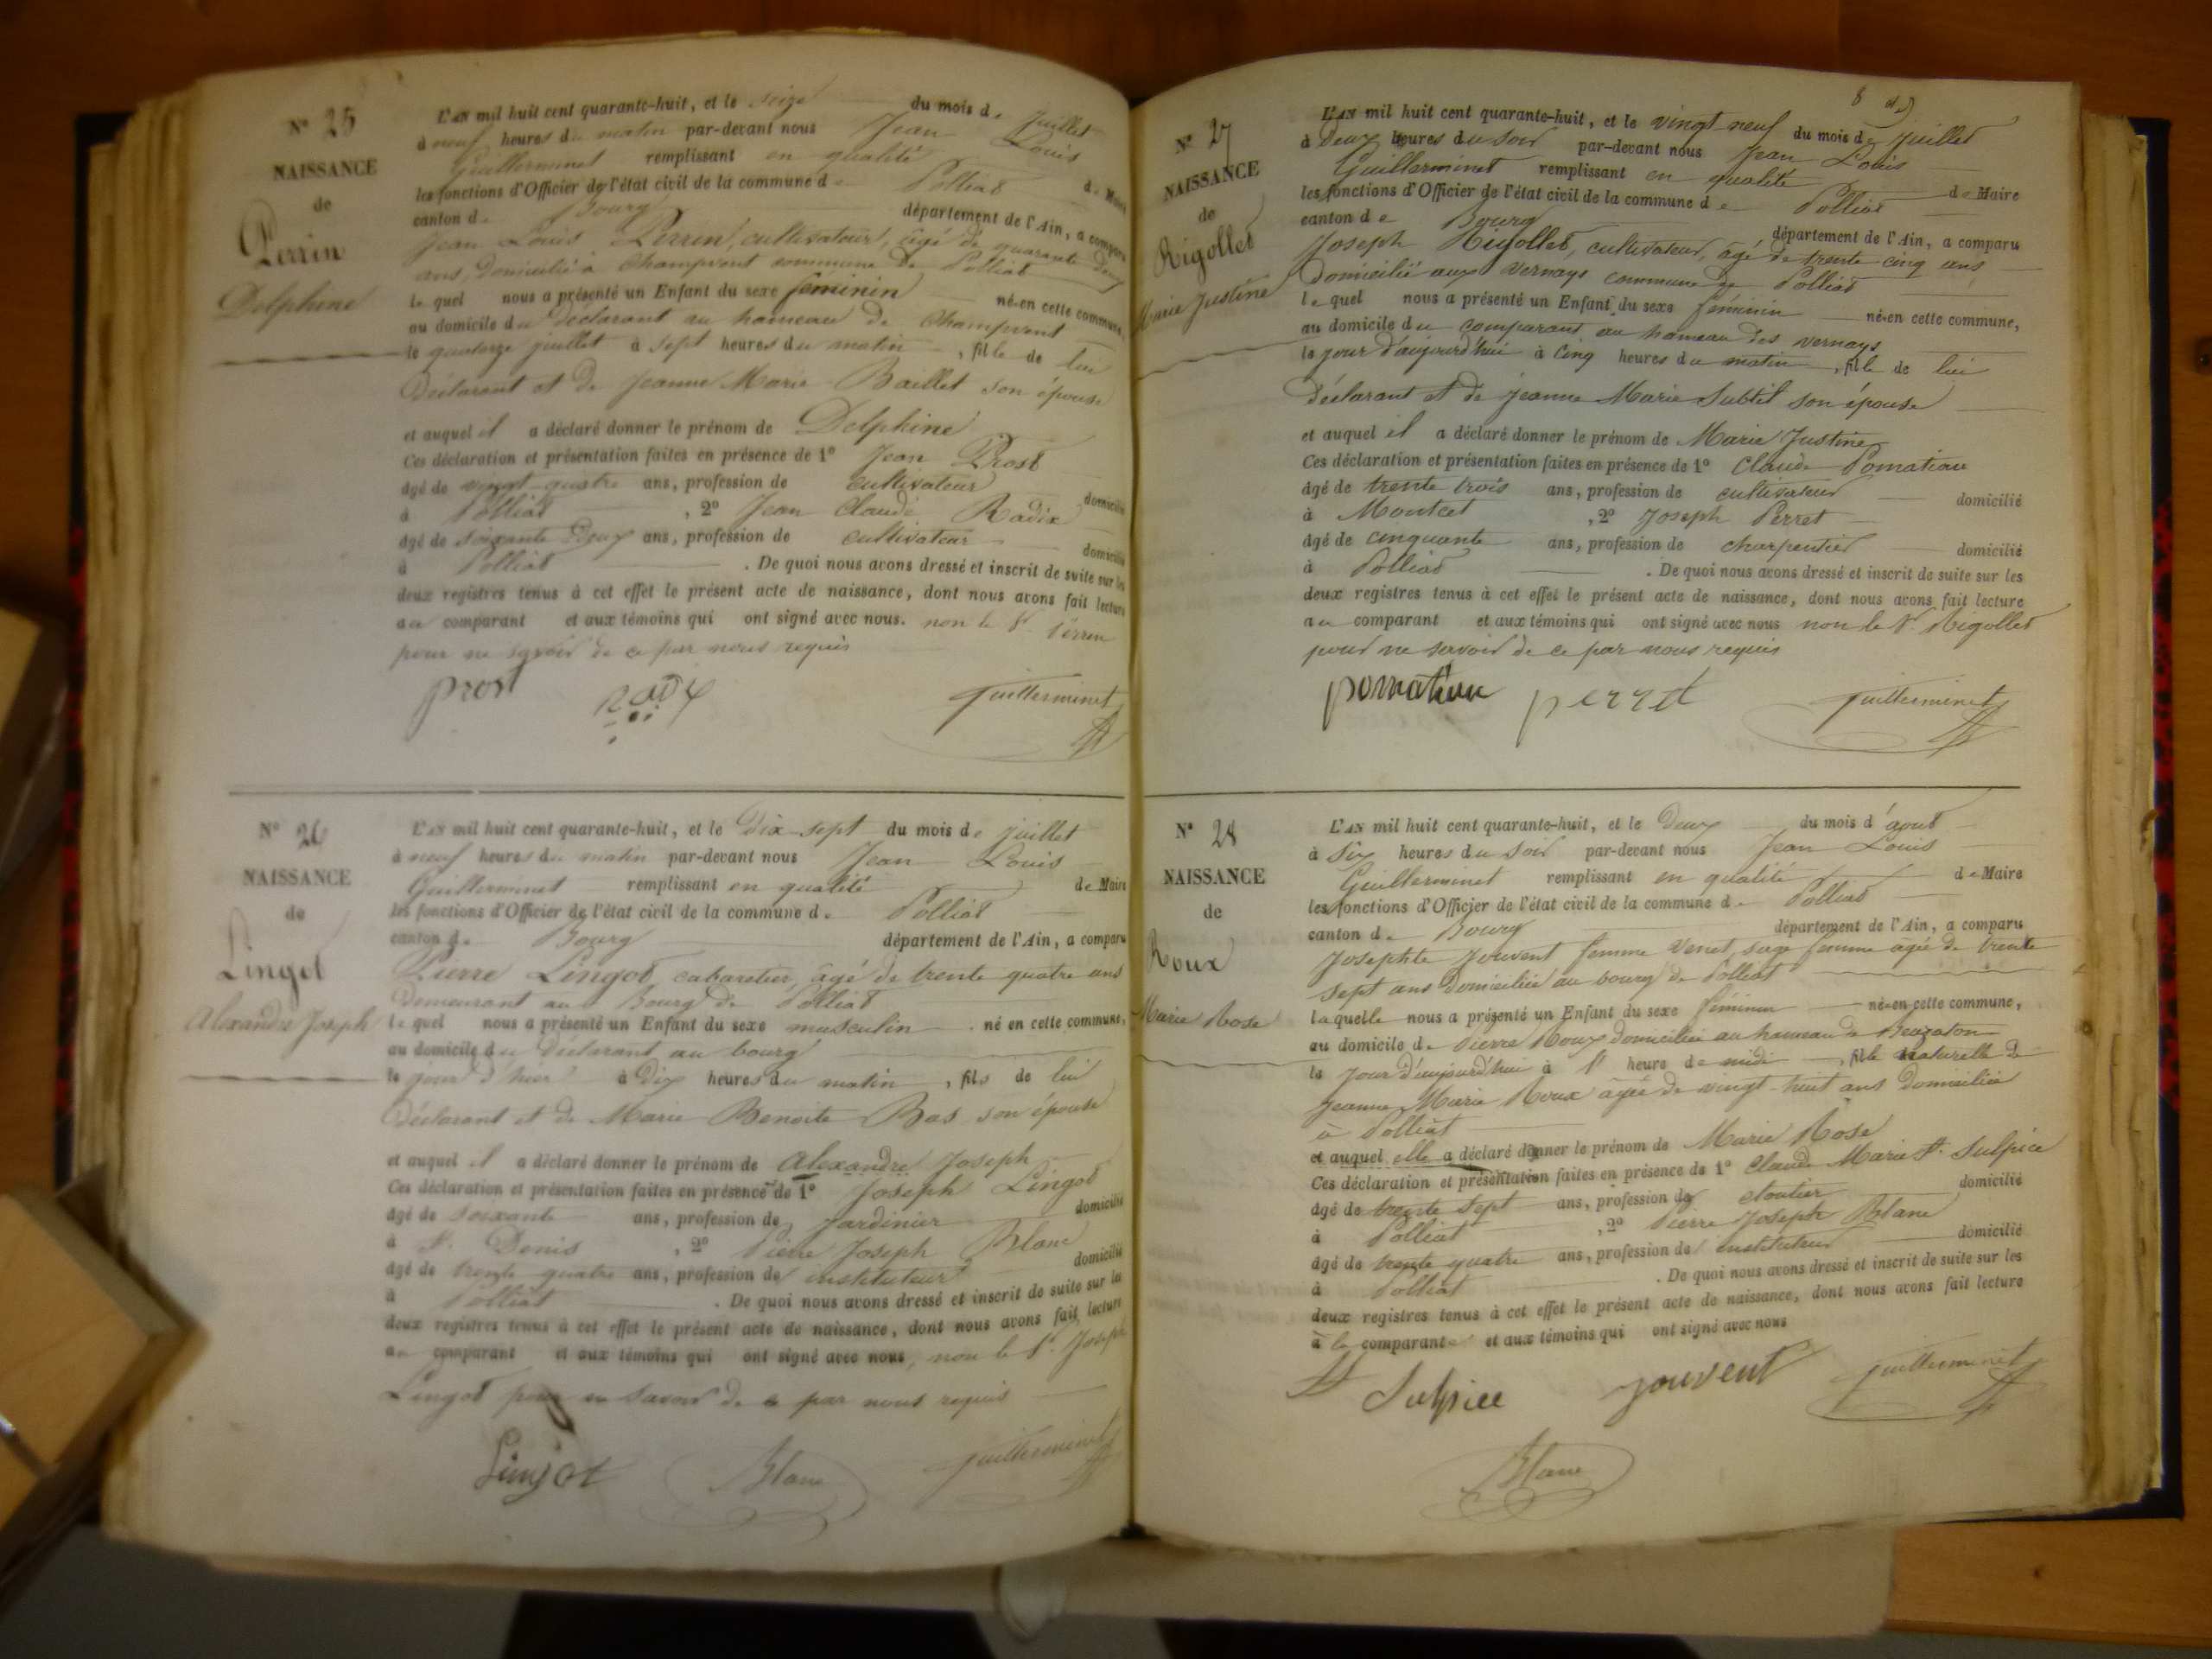 N° 25
NAISSANCE
de
Perrin
Delphine
L'AN mil huit cent quarante-huit, et le seize du mois de juillet
à neuf heures du matin par-devant nous Jean Louis
Guillerminet remplissant en qualité de Maire
les fonctions d'Officier de l'état civil de la commune de Polliat
canton de Bourg département de l'Ain, a comparu
Jean Louis Perrin, cultivateur, âgé de quarante deux
ans, domicilié à Champvent commune de Polliat
lequel nous a présenté un Enfant du sexe féminin née en cette commune,
au domicile du déclarant au hameau de Champvent
le quatorze juillet à sept heures du matin, fille de lui
Déclarant et de Jeanne Marie Baillet son épouse
et auquel il a déclaré donner le prénom de Delphine
Ces déclaration et présentation faites en présence de 1° Jean Prost
âgé de vingt quatre ans, profession de cultivateur domicilié
à Polliat, 2° Jean Claude Radix
âgé de soixante Deux ans, profession de cultivateur domicilié
à Polliat. De quoi nous avons dressé et inscrit de suite sur les
deux registres tenus à cet effet le présent acte de naissance, dont nous avons fait lecture
au comparant et aux témoins qui ont signé avec nous. non le Sr. Perrin
pour ne savoir de ce par nous requis
prost Radix Guillerminet
N° 26
NAISSANCE
de
Lingot
Alexandre Joseph
L'AN mil huit cent quarante-huit, et le Dix sept du mois de juillet
à neuf heures du matin par-devant nous Jean Louis
Guillerminet remplissant en qualité de Maire
les fonctions d'Officier de l'état civil de la commune de Polliat
canton de Bourg département de l'Ain, a comparu
Pierre Lingot, cabaretier, âgé de trente quatre ans
Demeurant au Bourg de Polliat
lequel nous a présenté un Enfant du sexe masculin né en cette commune,
au domicile du Déclarant au bourg
le jour d'hier à Dix heures du matin, fils de lui
Déclarant et de Marie Benoite Bas son épouse
et auquel il a déclaré donner le prénom de Alexandre Joseph
Ces déclaration et présentation faites en présence de 1° Joseph Lingot
âgé de soixante ans, profession de Jardinier domicilié
à St. Denis, 2° Pierre Joseph Blanc
âgé de trente quatre ans, profession de instituteur domicilié
à Polliat. De quoi nous avons dressé et inscrit de suite sur les
deux registres tenus à cet effet le présent acte de naissance, dont nous avons fait lecture
au comparant et aux témoins qui ont signé avec nous, non le Sr. Joseph
Lingot pour ne savoir de ce par nous requis
Lingot Blanc Guillerminet
8
N° 27
NAISSANCE
de
Rigollet
Marie Justine
L'AN mil huit cent quarante-huit, et le vingt-neuf du mois de juillet
à Deux heures du soir par-devant nous Jean Louis
Guillerminet remplissant en qualité de Maire
les fonctions d'Officier de l'état civil de la commune de Polliat
canton de Bourg département de l'Ain, a comparu
Joseph Rigollet, cultivateur, âgé de trente cinq ans
Domicilié aux Vernays commune de Polliat
lequel nous a présenté un Enfant du sexe féminin née en cette commune,
au domicile du comparant au hameau des Vernays
le jour d'aujourd'hui à cinq heures du matin, fille de lui
Déclarant et de Jeanne Marie Subtil son épouse
et auquel il a déclaré donner le prénom de Marie Justine
Ces déclaration et présentation faites en présence de 1° Claude Pomatiau
âgé de trente trois ans, profession de cultivateur domicilié
à Montcet, 2° Joseph Perret
âgé de cinquante ans, profession de charpentier domicilié
à Polliat. De quoi nous avons dressé et inscrit de suite sur les
deux registres tenus à cet effet le présent acte de naissance, dont nous avons fait lecture
au comparant et aux témoins qui ont signé avec nous non le Sr. Rigollet
pour ne savoir de ce par nous requis
pomatiau perret Guillerminet
N° 28
NAISSANCE
de
Roux
Marie Rose
L'AN mil huit cent quarante-huit, et le Deux du mois d'août
à Six heures du soir par-devant nous Jean Louis
Guillerminet remplissant en qualité de Maire
les fonctions d'Officier de l'état civil de la commune de Polliat
canton de Bourg département de l'Ain, a comparu
Josephte Jouvent femme Venet, sage femme agée de trente
sept ans Domiciliée au bourg de Polliat
laquelle nous a présenté un Enfant du sexe féminin née en cette commune,
au domicile de Pierre Roux domicilié au hameau de
le jour d'aujourd'hui à 1' heure de midi, fille naturelle de
Jeanne Marie Roux agée de vingt-huit ans Domiciliée
à Polliat
et auquel elle a déclaré donner le prénom de Marie Rose
Ces déclaration et présentation faites en présence de 1° Claude Marie St. Sulpice
âgé de trente sept ans, profession de cloutier domicilié
à Polliat, 2° Pierre Joseph Blanc
âgé de trente quatre ans, profession de instituteur domicilié
à Polliat. De quoi nous avons dressé et inscrit de suite sur les
deux registres tenus à cet effet le présent acte de naissance, dont nous avons fait lecture
à la comparante et aux témoins qui ont signé avec nous
St Sulpice jouvent Guillerminet
Blanc